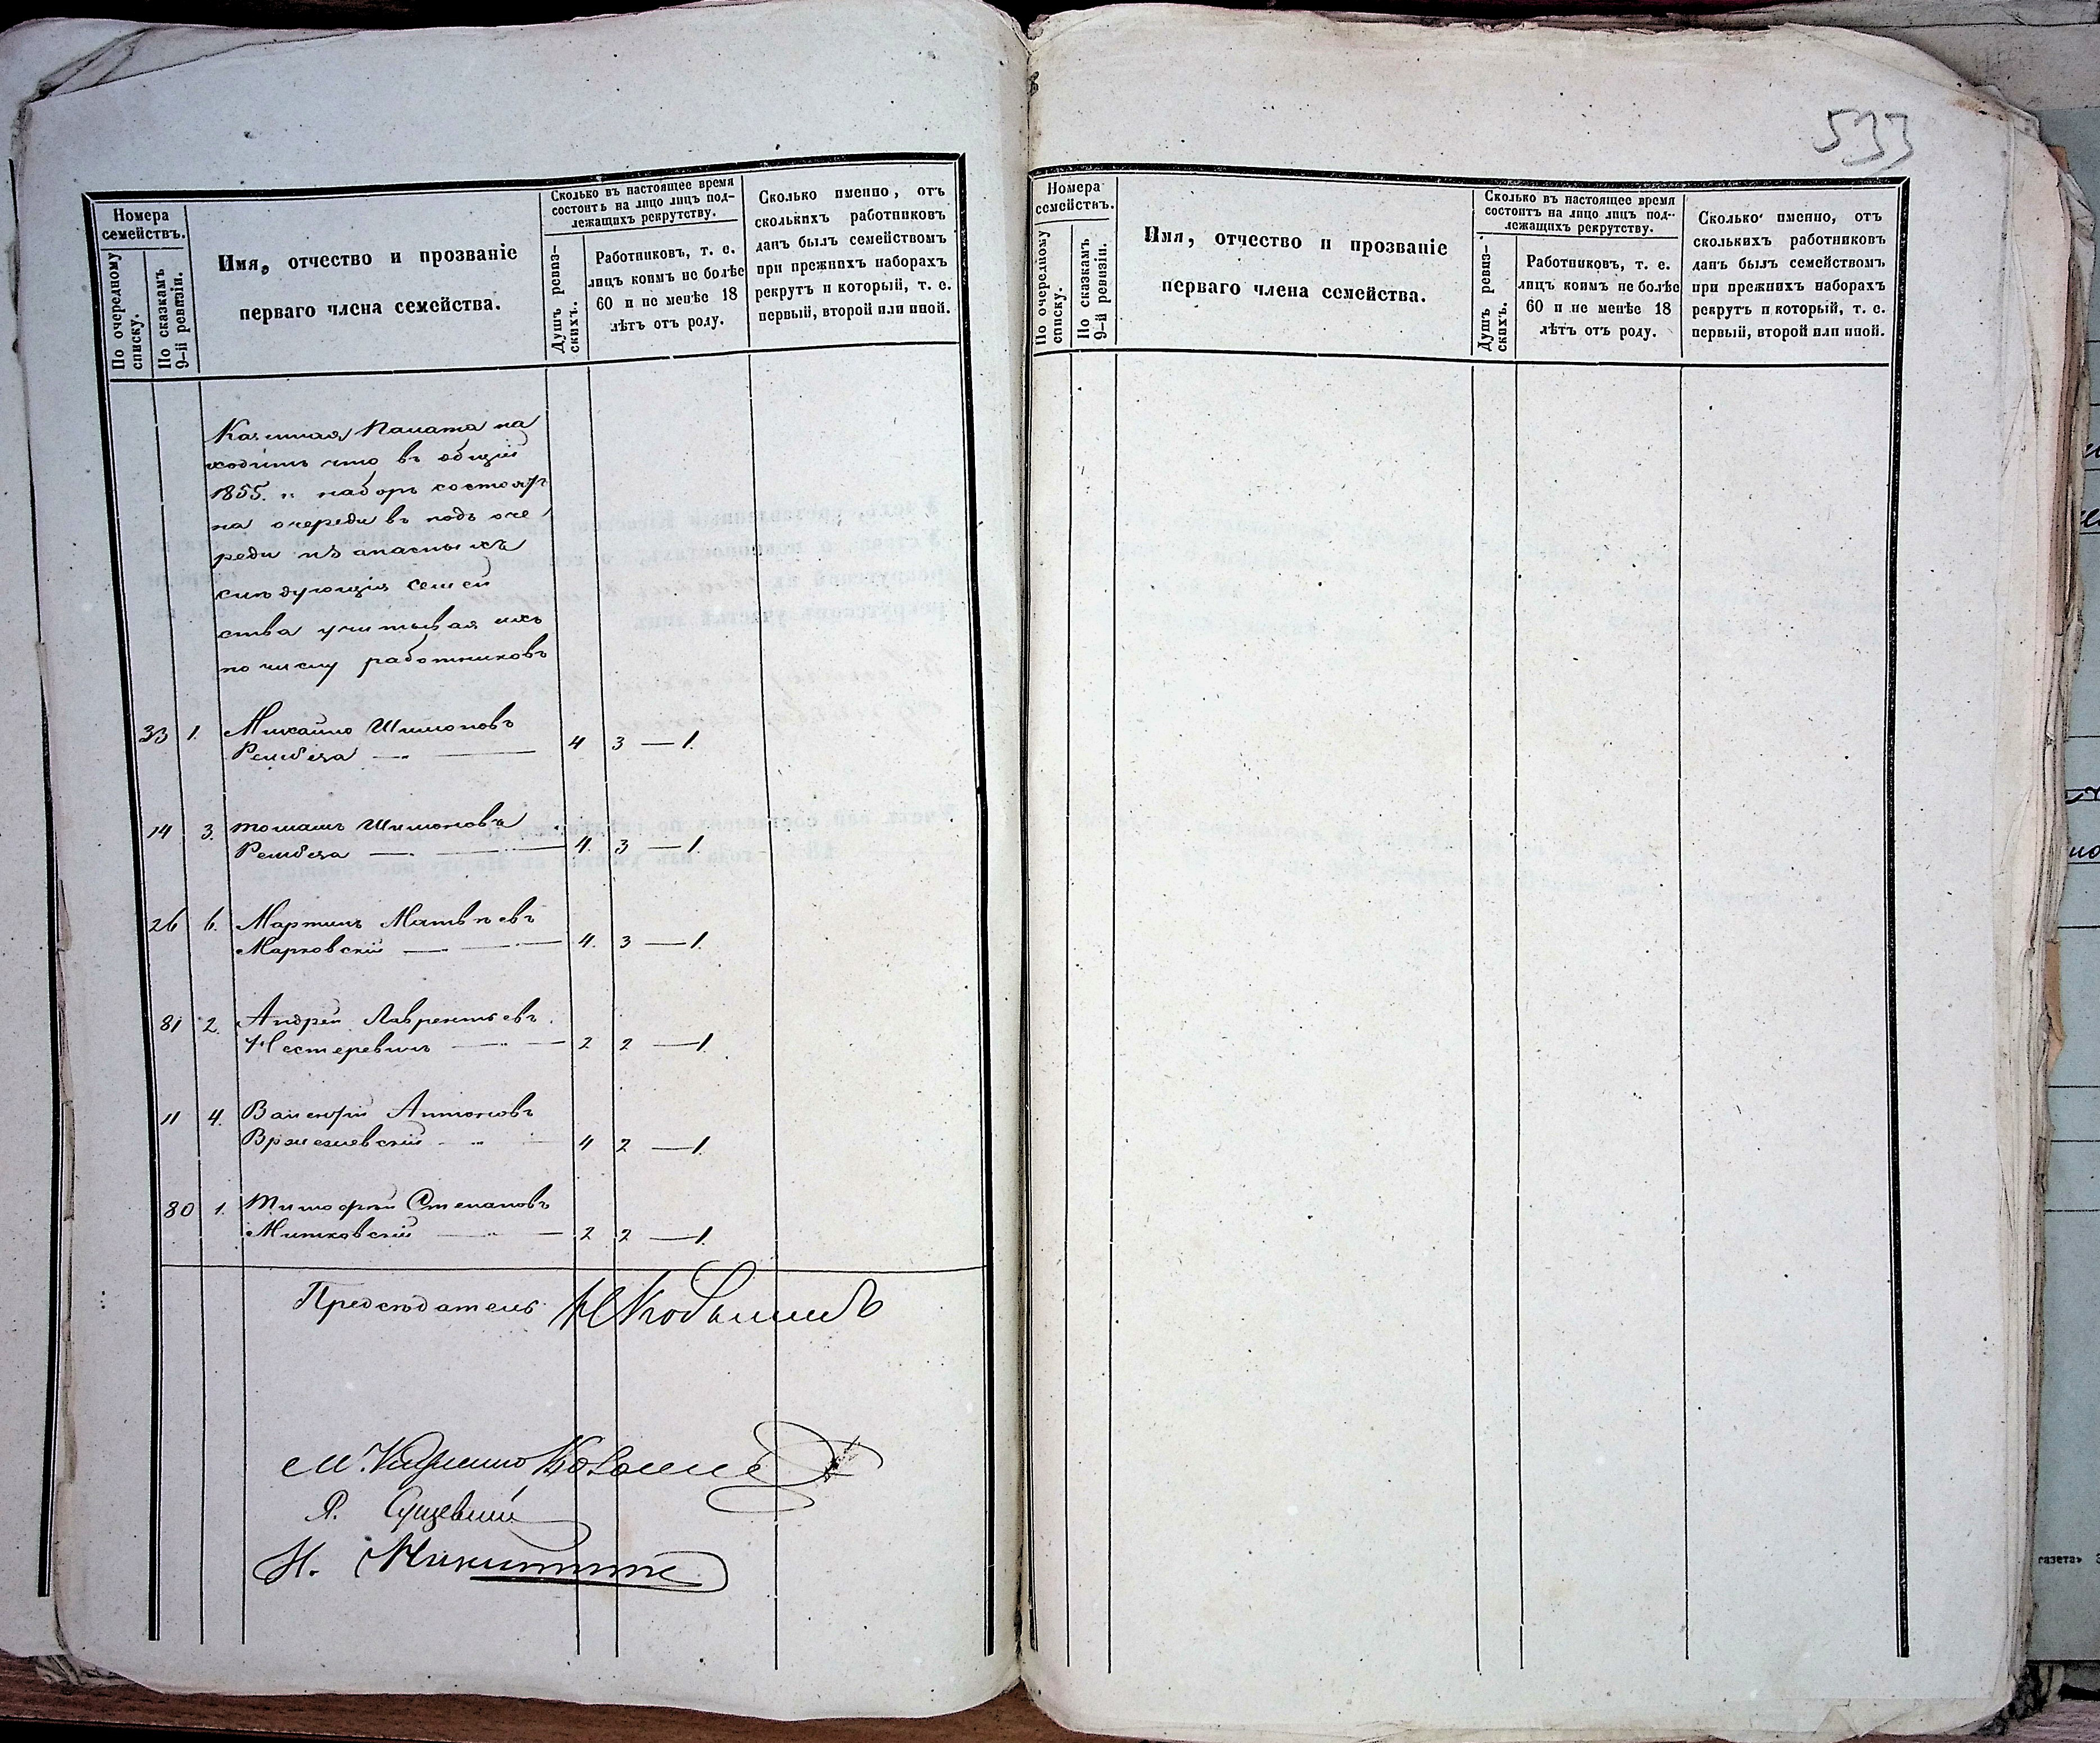 Номера семействъ.
По очередному списку.
По сказкамъ 9-й ревизіи.
Имя, отчество и прозваніе
перваго члена семейства.
Сколько въ настоящее время
состоитъ на лицо лицъ под-
лежащихъ рекрутству.
Душъ ревиз-
скихъ.
Работниковъ, т. е.
лицъ коимъ не болѣе
60 и не менѣе 18
лѣтъ отъ роду.
Сколько именно, отъ
сколькихъ работниковъ
данъ былъ семействомъ
при прежнихъ наборахъ
рекрутъ и который, т. е.
первый, второй или иной.
Казенная Палата на
ходитъ что въ общій
1855. г. наборъ состоятъ
на очереди въ подъ оче
реди
слѣдующія семей
ства учитывая ихъ
по числу работниковъ
33 1. Михайло Шимоновъ
Рембеза 4 3 — 1.
14 3. Томашъ Шимоновъ
Рембеза 4. 3 — 1.
26 6. Мартинъ Матвѣевъ
Марковскій 4. 3 — 1.
81 2. Андрей Лаврентьевъ
Нестеревичъ 2 2 — 1.
11 4. Антоновъ
4 2 — 1.
80 1. Тимофей Степановъ
Митковскій 2 2 — 1.
Предсѣдатель
Н. Никитин
533
Номера
семействъ.
По очередному
списку.
По сказкамъ
9-й ревизіи.
Имя, отчество и прозваніе
перваго члена семейства.
Сколько въ настоящее время
состоитъ на лицо лицъ под-
лежащихъ рекрутству.
Душъ ревиз-
скихъ.
Работниковъ, т. е.
лицъ коимъ не болѣе
60 и не менѣе 18
лѣтъ отъ роду.
Сколько именно, отъ
сколькихъ работниковъ
данъ былъ семействомъ
при прежнихъ наборахъ
рекрутъ и который, т. е.
первый, второй или иной.
газета»